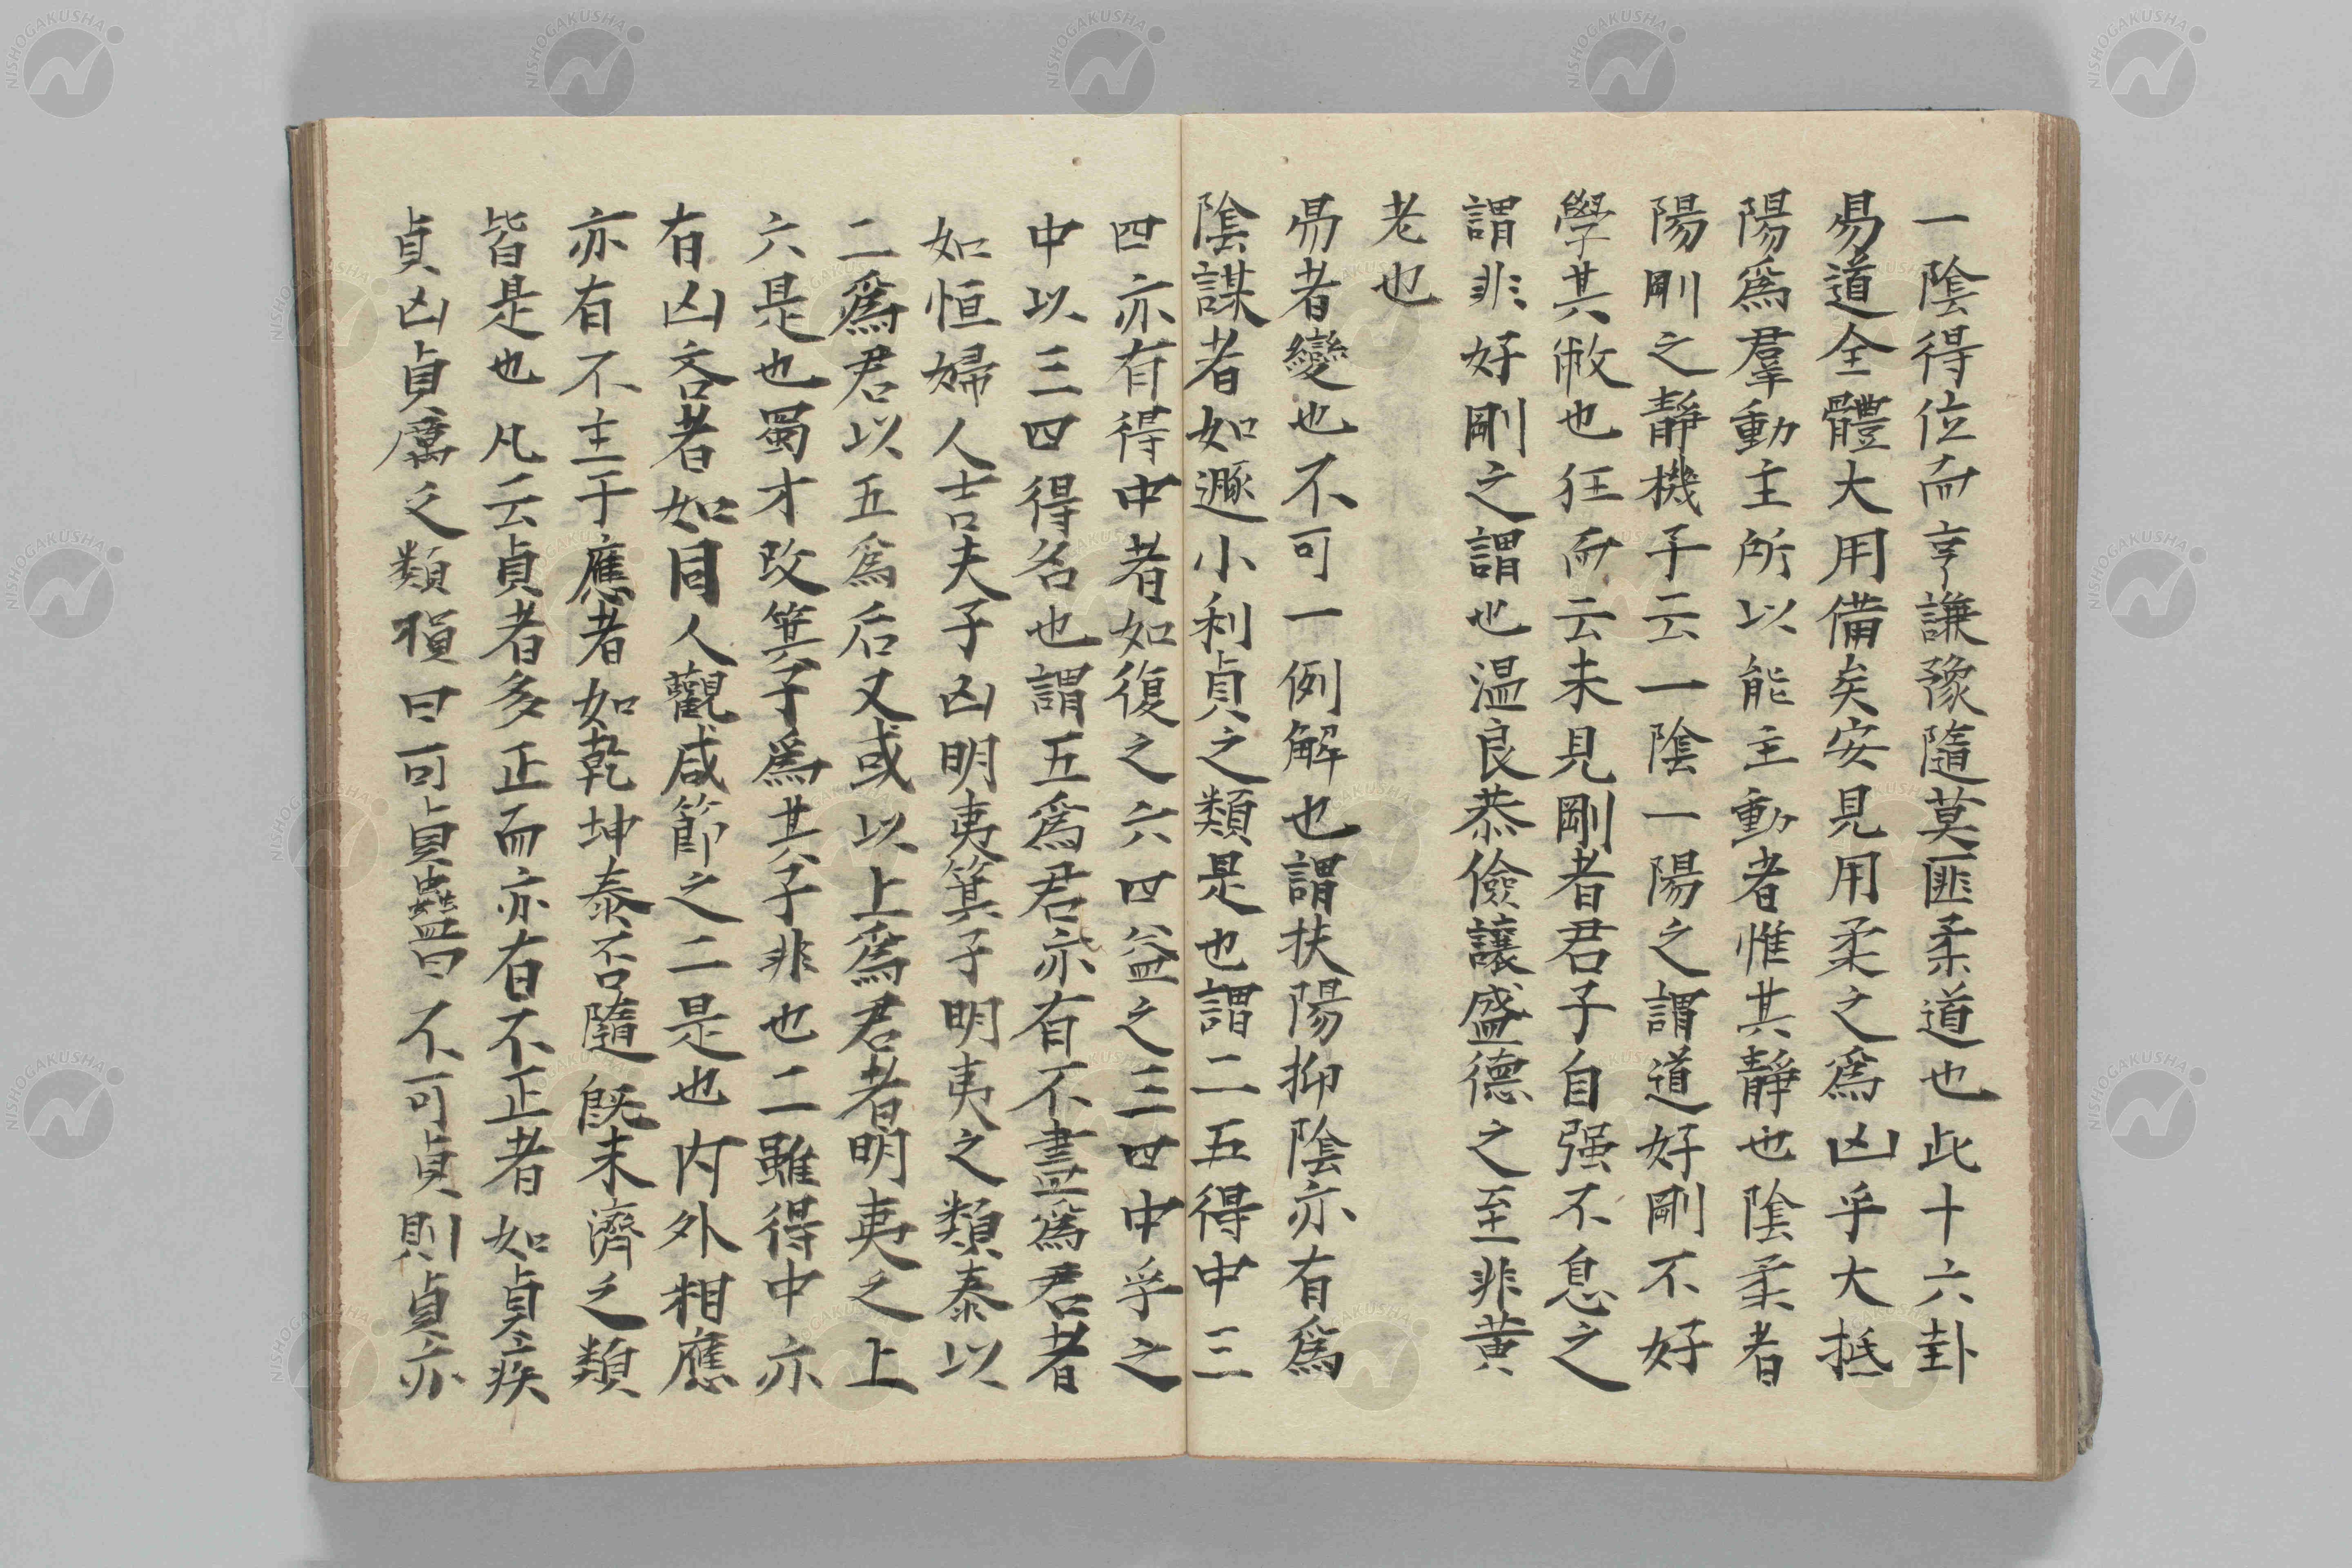 一陰得位而亨謙豫隨莫匪柔道也此十六卦
易道全體大用備矣安見用柔之爲凶乎大抵
陽爲羣動主所以能主動者惟其靜也陰柔者
陽剛之靜機子云一陰一陽之謂道好剛不好
學其敝也狂而云未見剛者君子自强不息之
謂非好剛之謂也温良恭儉讓盛德之至非黄
老也
易者變也不可一例解也謂扶陽抑陰亦有爲
陰謀者如遯小利貞之類是也謂二五得中三
四亦有得中者如復之六四益之三四中孚之
中以三四得名也謂五爲君亦有不盡爲君者
如恒婦人吉夫子凶明夷箕子明夷之類泰以
二爲君以五爲后又或以上爲君者明夷之上
六是也蜀才改箕子爲其子非也二雖得中亦
有凶吝者如同人觀咸節之二是也内外相應
亦有不主于應者如乾坤泰否隨既未濟之類
皆是也凡云貞者多正而亦有不正者如貞疾
貞凶貞厲之類損曰可貞蠱曰不可貞則貞亦
NISHOGAKUSHA